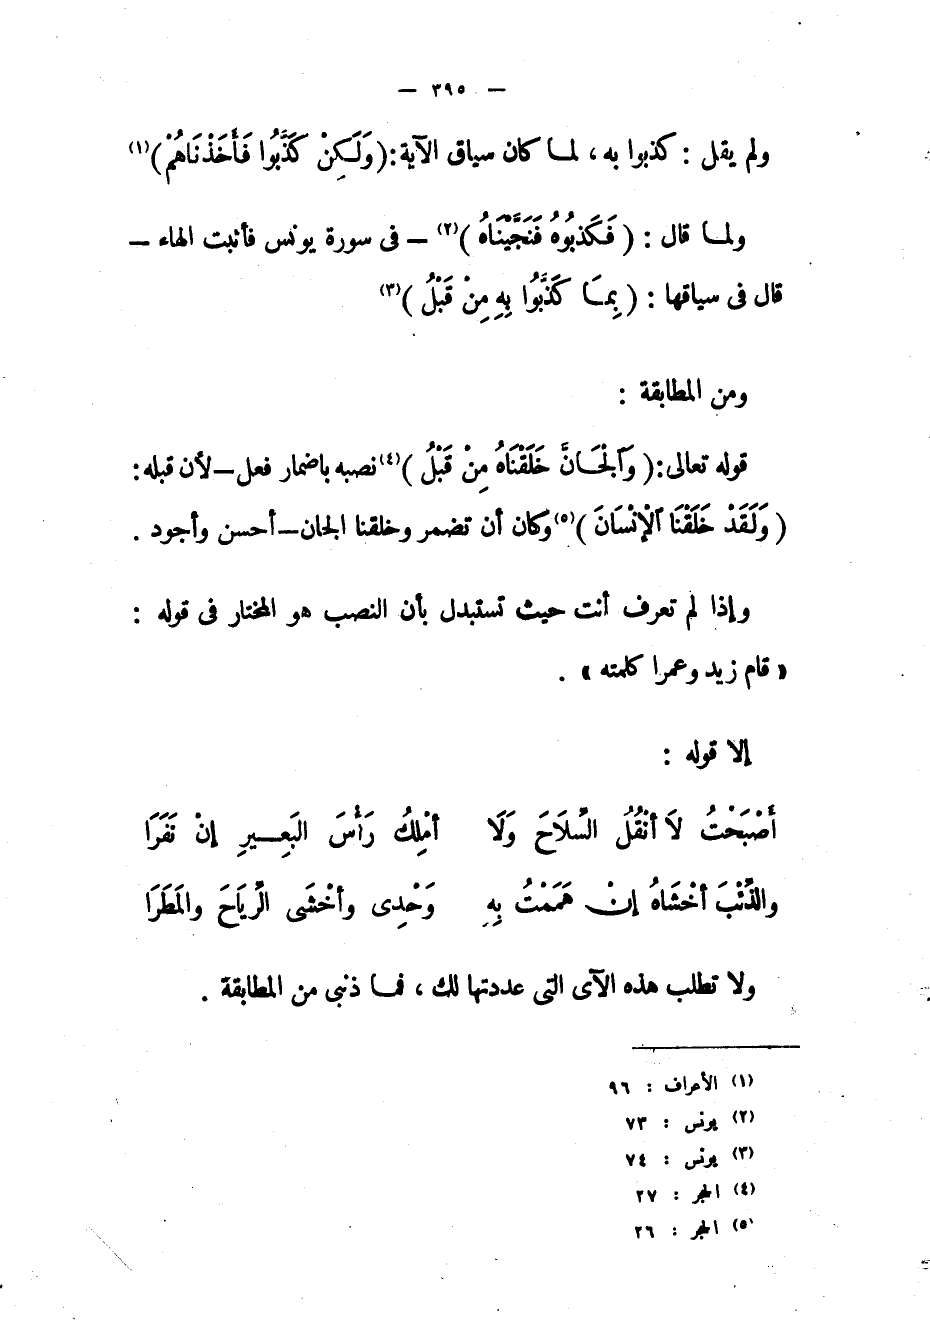 — ٣٩٥ —
ولم يقل : كذبوا به ، لما كان سياق الآية : ( وَلَكِنْ كَذَّبُوا فَأَخَذْنَاهُمْ )(١)
ولما قال : ( فَكَذَّبُوهُ فَنَجَّيْنَاهُ )(٢) – فى سورة يونس فأثبت الهاء –
قال فى سياقها : ( بِمَا كَذَّبُوا بِهِ مِنْ قَبْلُ )(٣)
ومن المطابقة :
قوله تعالى : ( وَٱلْجَانَّ خَلَقْنَاهُ مِنْ قَبْلُ )(٤) نصبه باضمار فعل – لأن قبله :
( وَلَقَدْ خَلَقْنَا ٱلْإِنْسَانَ )(٥) وكان أن تضمر وخلقنا الجان – أحسن وأجود .
وإذا لم تعرف أنت حيث تستبدل بأن النصب هو المختار فى قوله :
« قام زيد وعمرا كلمته » .
إلا قوله :
أَصْبَحْتُ لاَ أنْقُلُ السِّلاَحَ وَلَا أمْلِكُ رَأْسَ البَعِيرِ إنْ نَفَرَا
والذِّئْبَ أخْشَاهُ إنْ هَمَمْتُ بِهِ وَحْدِى وأخْشَى الرِّيَاحَ والمَطَرَا
ولا تطلب هذه الآى التى عددتها لك ، فما ذنبى من المطابقة .
(١) الأعراف : ٩٦
(٢) يونس : ٧٣
(٣) يونس : ٧٤
(٤) الحجر : ٢٧
(٥) الحجر : ٢٦